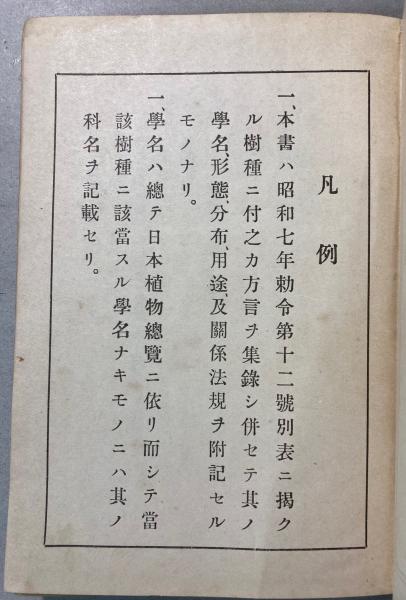 凡例
一、本書ハ昭和七年勅令第十二號別表ニ揭ク
ル樹種ニ付之カ方言ヲ集錄シ併セテ其ノ
學名、形態、分布、用途、及關係法規ヲ附記セル
モノナリ。
一、學名ハ總テ日本植物總覽ニ依リ而シテ當
該樹種ニ該當スル學名ナキモノニハ其ノ
科名ヲ記載セリ。